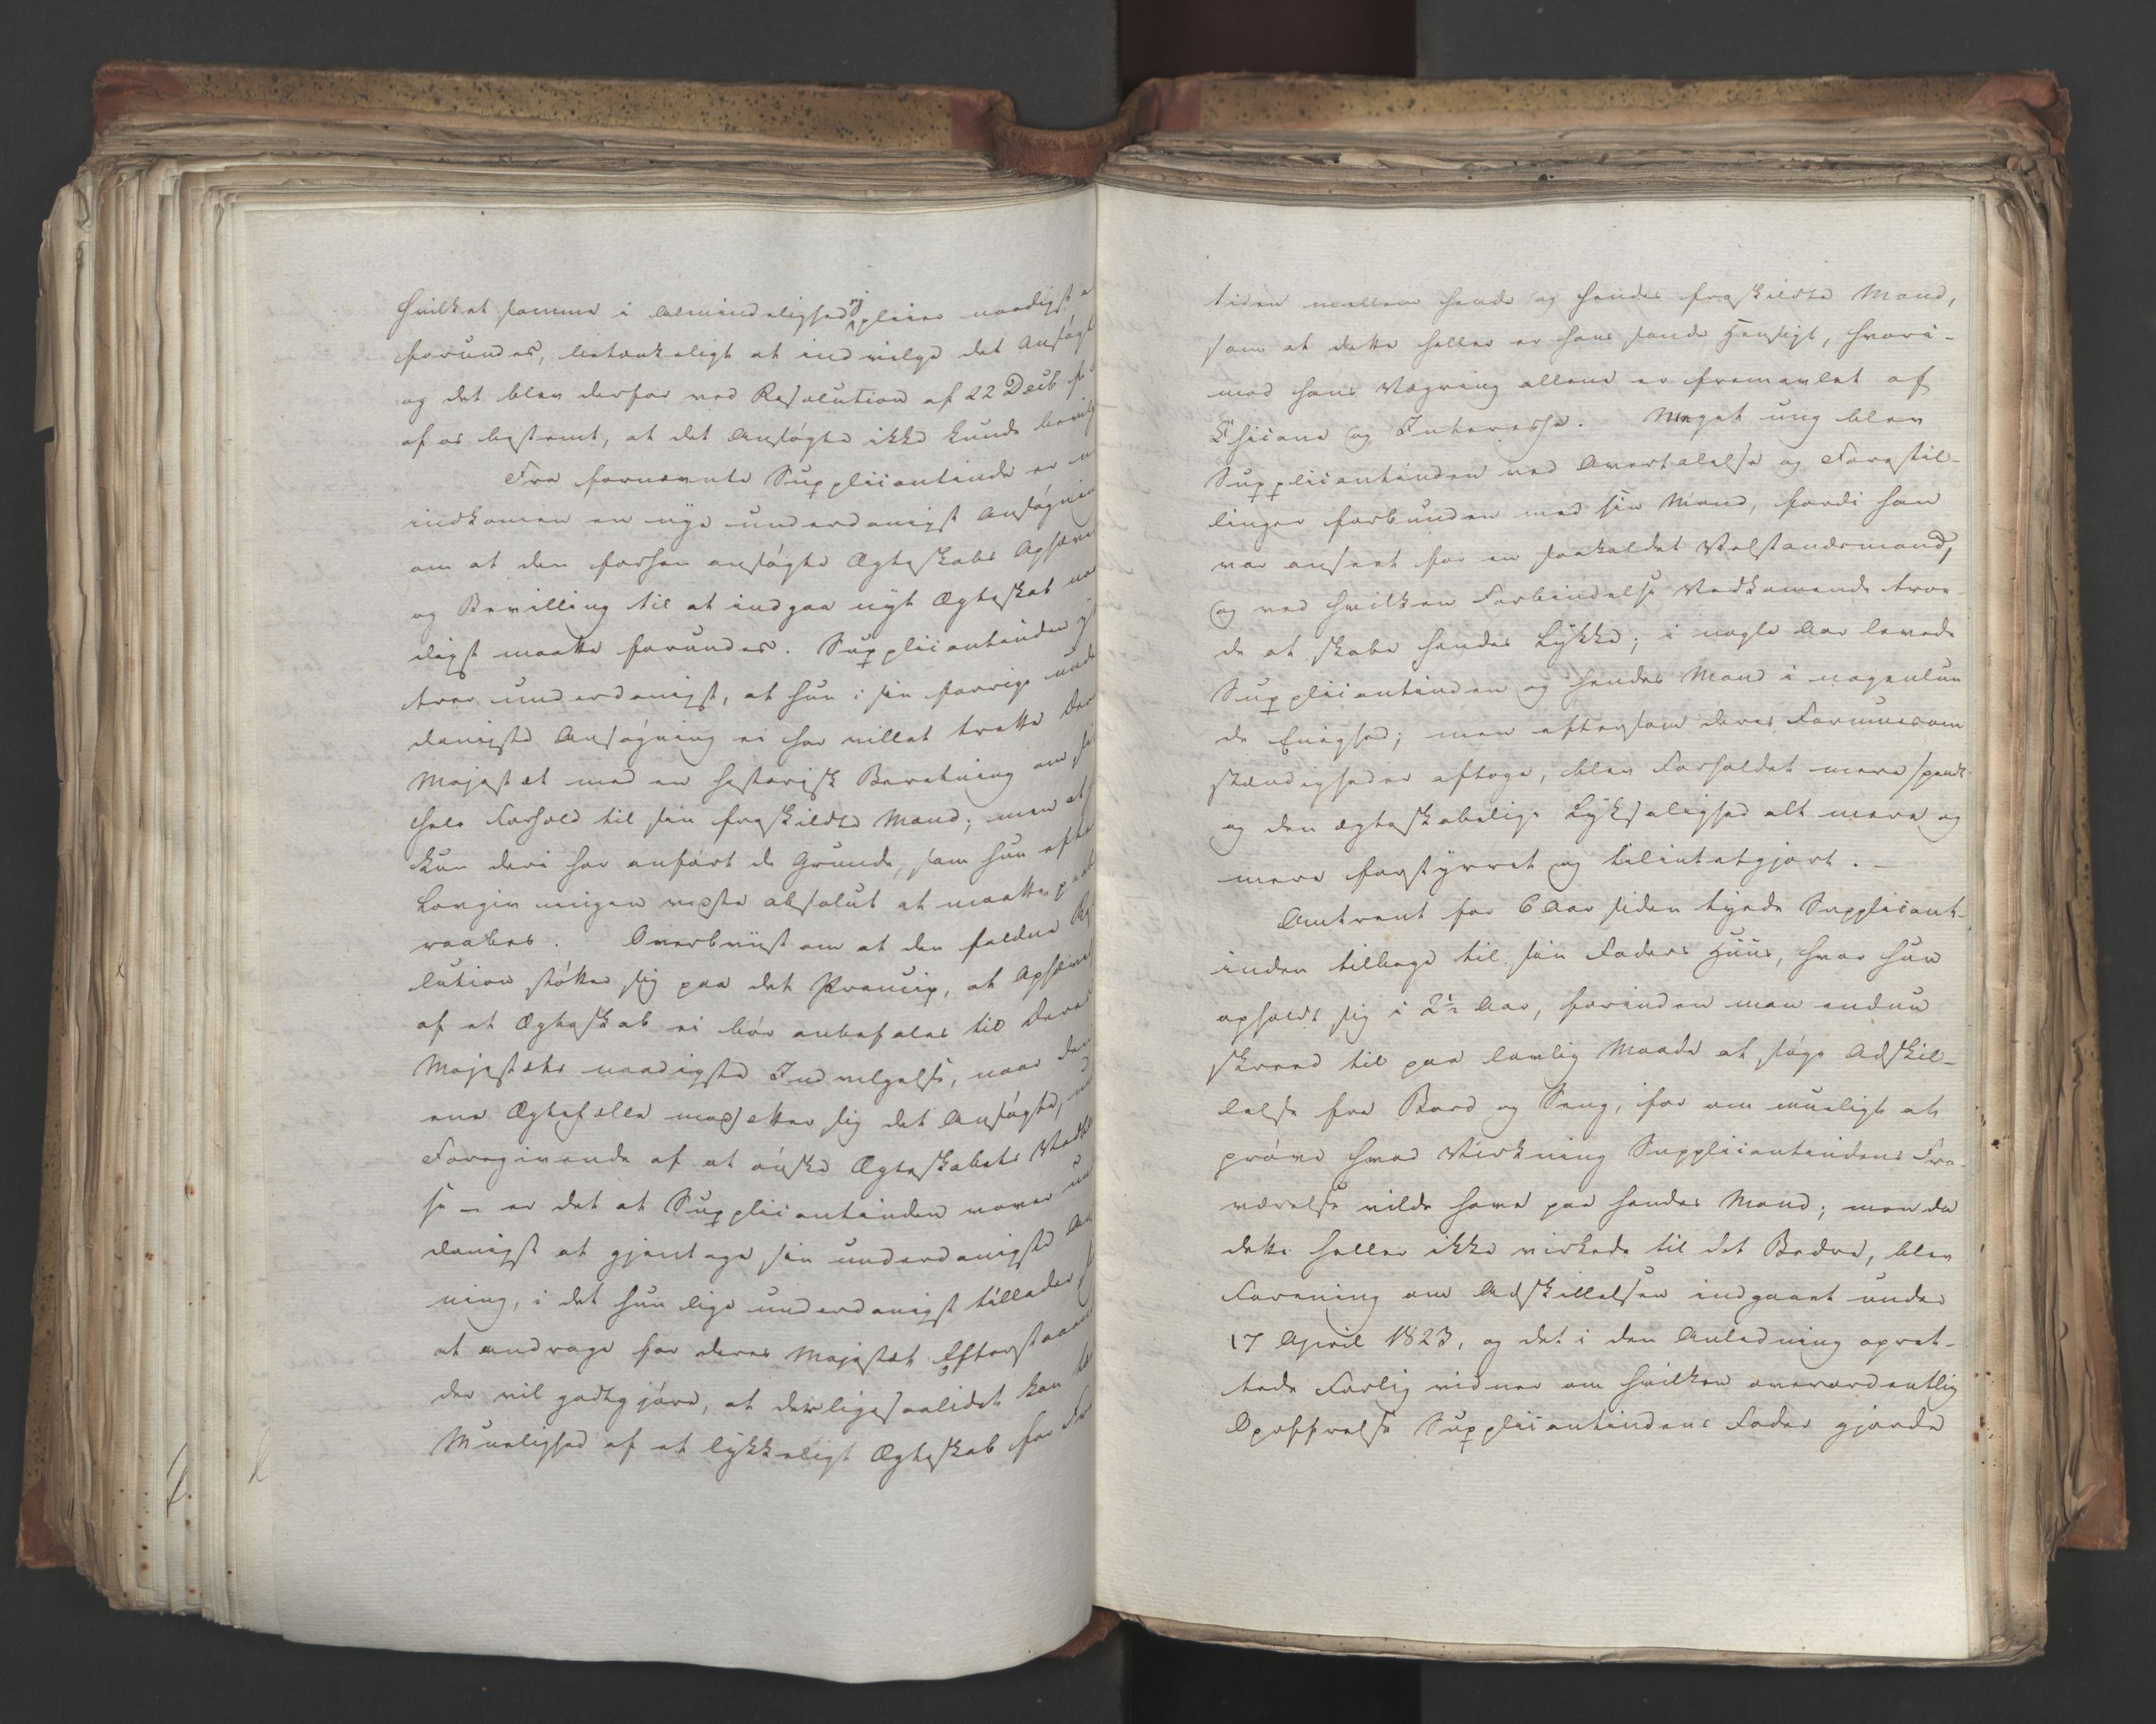 hvilket samme i Almindelighed ei pleier naadigst a
forundes, betænkeligt at indvilge det Ansøgt
og det blev derfor ved Resolution af 22 Decb. f.
af os bestemt, at det Ansøgte ikke kunde bevilg
Fra fornævnte Supplicantinde er n
indkommen en nye underdanigst Ansøgnin
om at den forhen ansøgte Ægteskabs Ophæve
og Bevilling til at indgaae nyt Ægteskab naa
digst maatte forundes. Supplicantinden
trer underdanigst, at hun i sin forrige unde
danigste Ansøgning ei har villet trætte Der
Majestæt med en historisk Beretning om si
hele Forhold til sin fraskildte Mand; men at
kun deri har anført de Grunde, som hun efte
Lovgivningen vidste absolut at maatte paa
raabes. Overbeviist om at den faldne Re
lution støtter sig paa det Princip, at Ophæve
af et Ægteskab ei bør anbefales til Deres
Majestæts naadigste Indvilgelse, naar den
ene Ægtefælle modsetter sig det Ansøgte, un
Foregivende af at ønske Ægteskabets Vedli
se – er det at Supplicantinden vover un
danigst at gjentage sin underdanigste An
ning, i det hun lige underdanigst tillader si
at andrage for Deres Majestæt Efterstaaen
der vil godtgjøre, at der ligesaalidet kan
Muelighed af et lykkeligt Ægteskab for Fre
tiden mellem hende og hendes fraskildte Mand,
som at dette heller er hans sande Hensigt, hvori-
mod hans Vægring allene er fremavlet af
Chicane og Interesse. Meget ung blev
Supplicantinden ved Overtalelse og Forestil-
linger forbunden med sin Mand, fordi han
var anseet for en saakaldet Velstandsmand,
og ved hvilken Forbindelse Vedkommende troe-
de at skabe hendes Lykke; i nogle Aar levede
Supplicantinden og hendes Mand i nogenlun
de Enighed; men eftersom deres Formuesom
stændigheder aftoge, blev Forholdet mere spendt
og den ægteskabelige Lyksalighed alt mere og
mere forstyrret og tilintetgjort. –
Omtrent for 6 Aar siden tyede Supplicant-
inden tilbage til sin Faders Huus, hvor hun
opholdt sig i 2½ Aar, forinden man endnu
skreed til paa lovlig Maade at søge Adskil-
lelse fra Bord og Seng, for om mueligt at
prøve hvad Virkning Supplicantindens Fra-
værelse vilde have paa hendes Mand; men da
dette heller ikke virkede til det Bedre, blev
Forening om Adskillelsen indgaaet under
17 April 1823, og det i den Anledning opret-
tede Forlig vidner om hvilken overordentlig
Opoffrelse Supplicantindens Fader gjorde